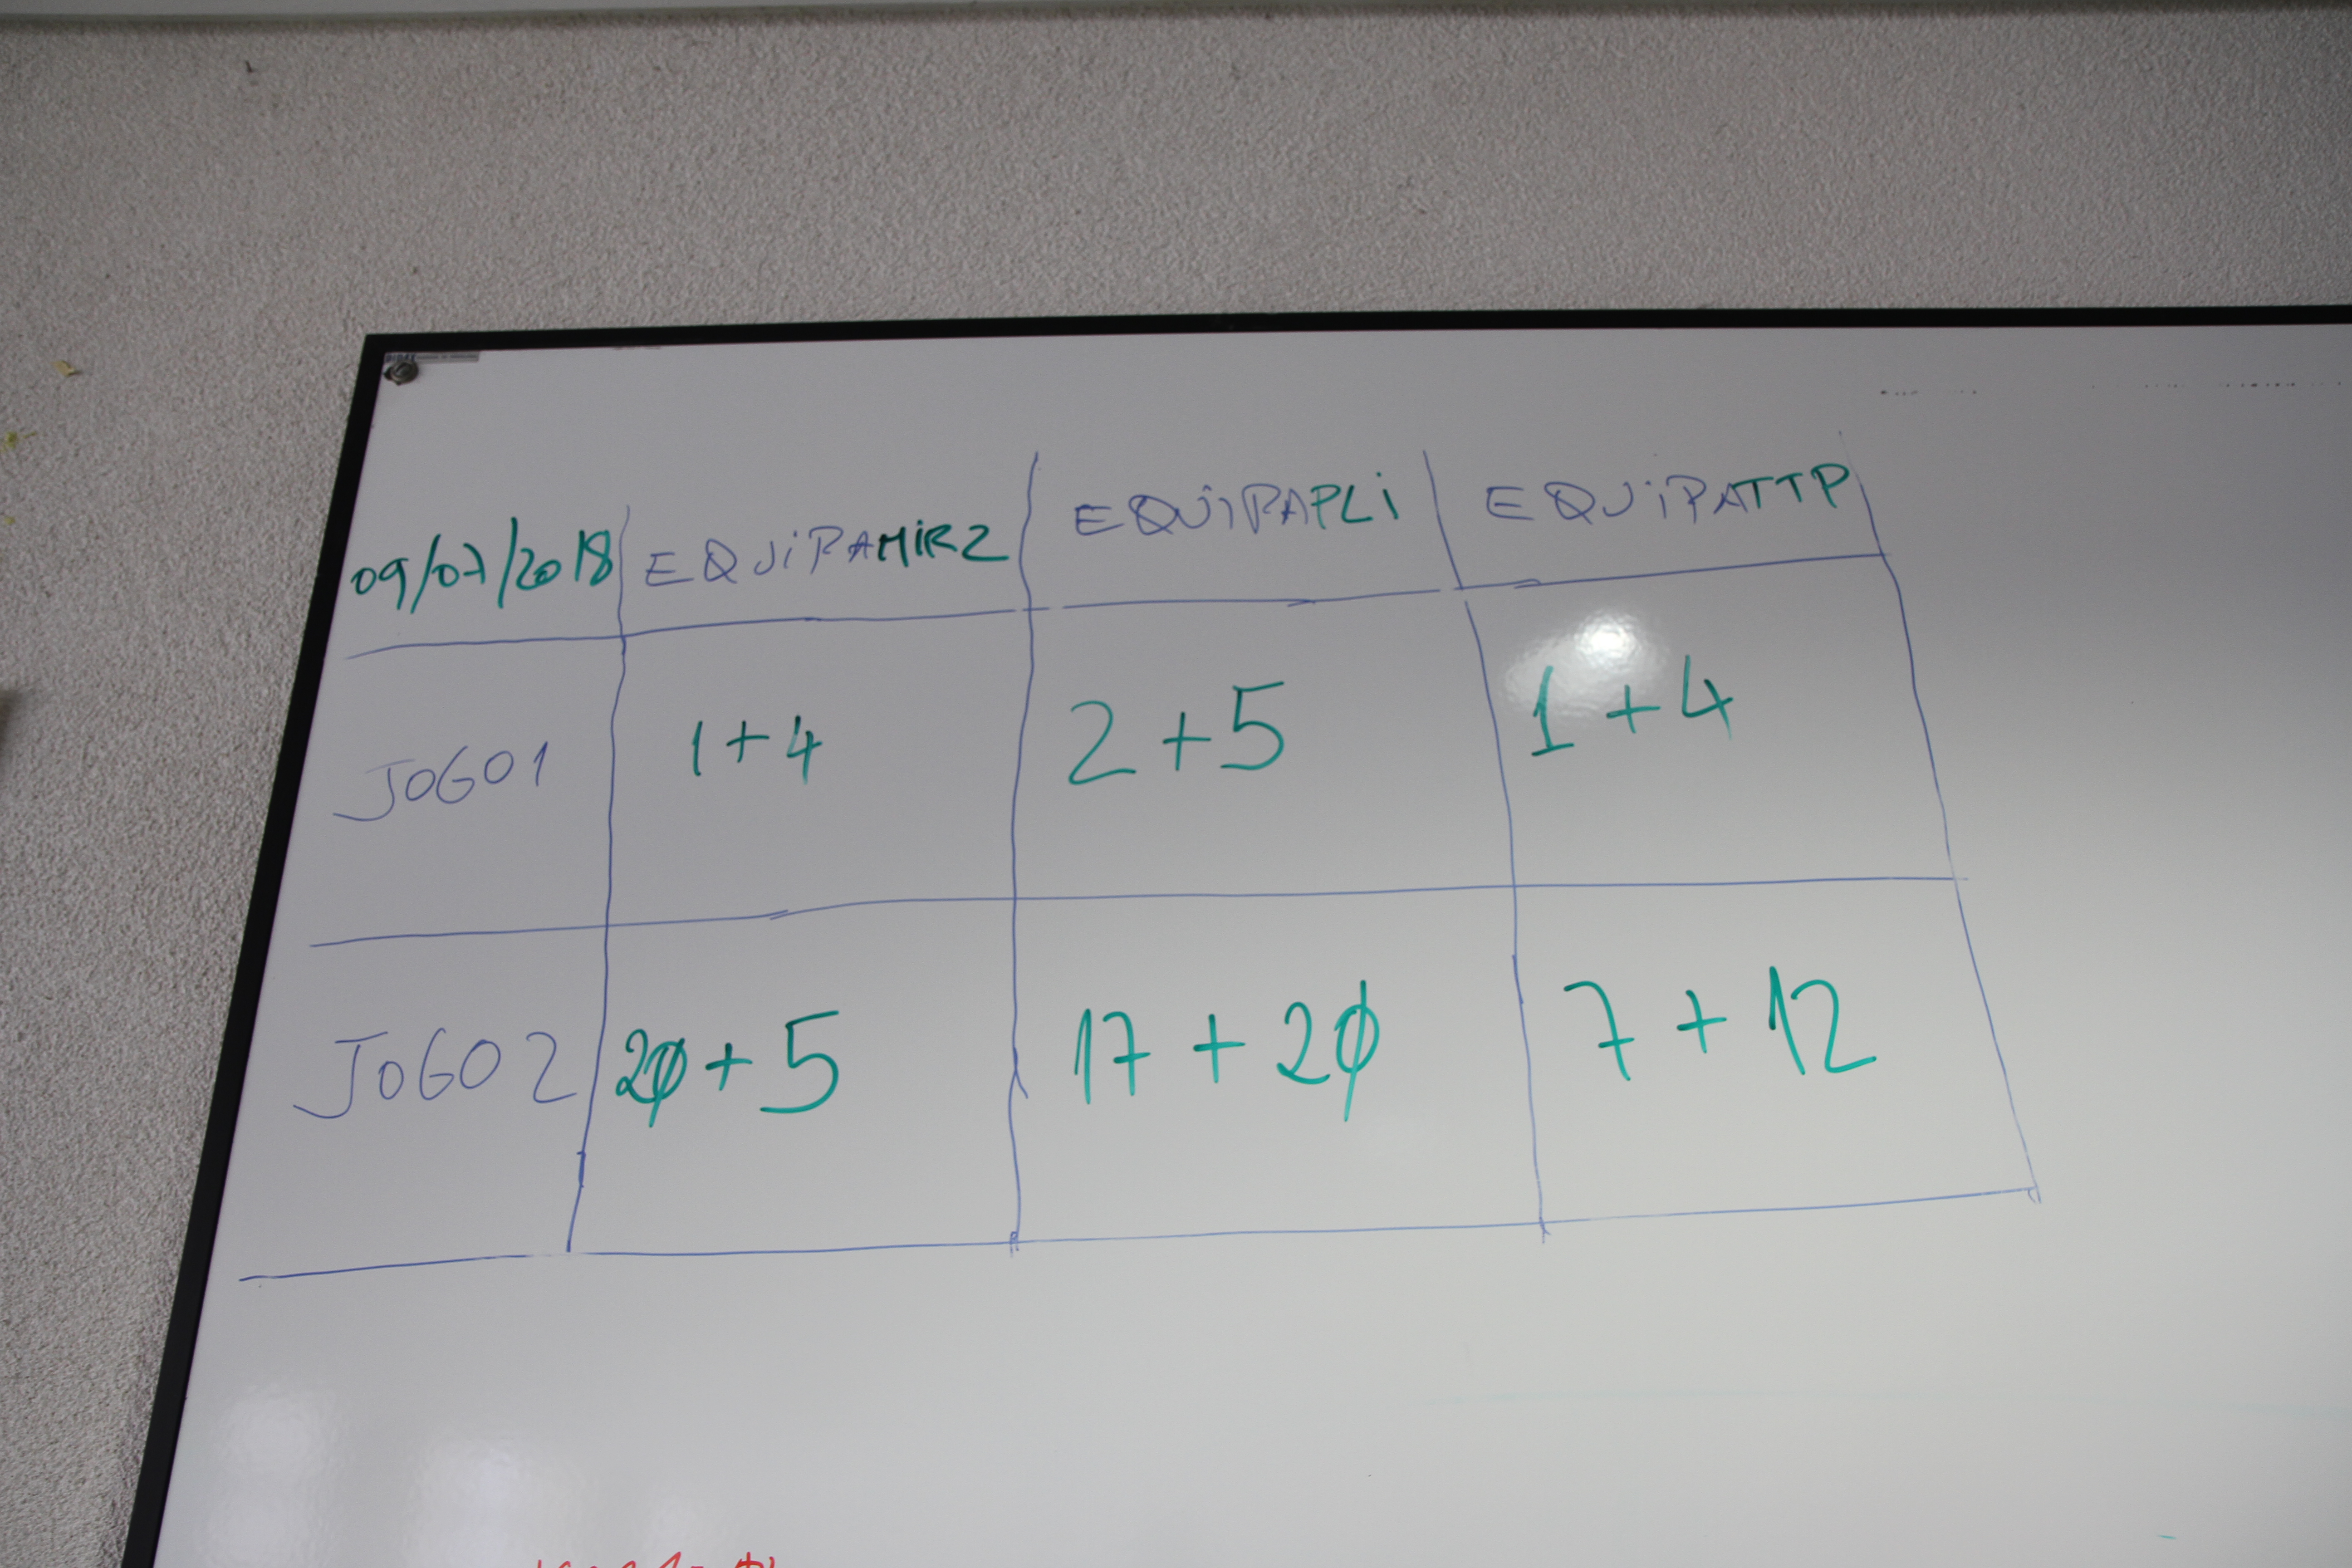 09/07/2018 EQUIPAMIR2 EQUIPAPLi EQUIPATTP
JOGO1 1+4 2+5 1+4
JOGO2 20+5 17+20 7+12